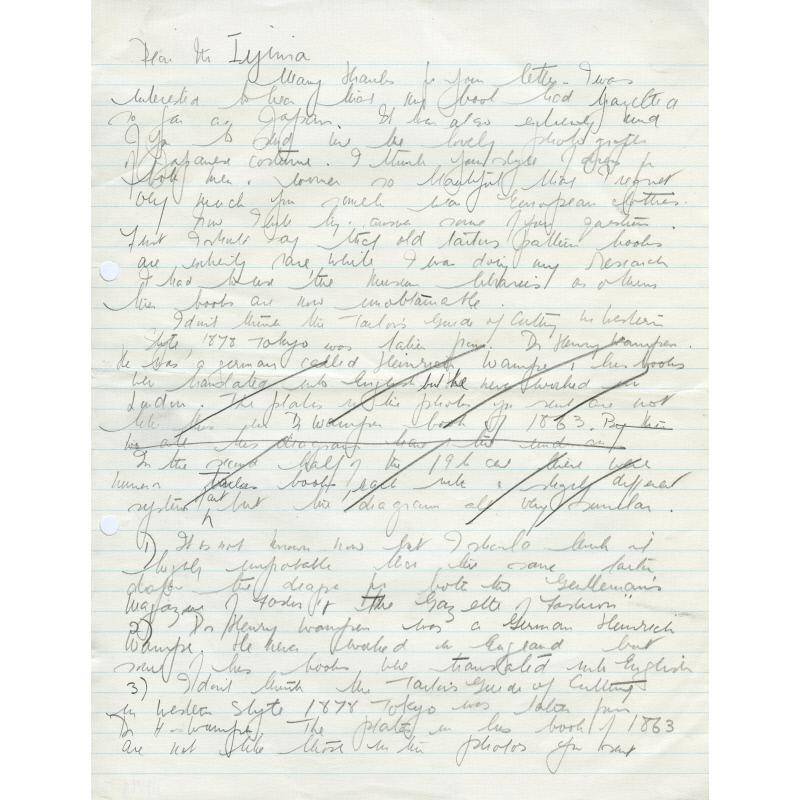 Dear Mr Iyima
Many thanks for your letter - I was
interested to hear that my book had travelled
so far as Japan. It was also extremely kind
of you to send me the lovely photographs
of Japanese costume. I think your style of dress for
both men & women so beautiful that I regret
very much you should wear European clothes.
Now I will try answer some of your questions.
First I should say that old tailors pattern books
are rare while I was doing my Research
I had to use the Museum libraries as
books are now unobtainable.
I don't think the Tailor's Guide of Cutting in Western
Style 1878 Tokyo was taken from Dr Henry Wampen.
He was a german called Heinrich Wampe & his books
were translated into English but he never worked in
London. The plates in the photos you sent are not
like this in Dr Wampen book of 1863. By
his diagram
In the second half of the 19th cen there were
tailors books each with a slightly different
system but the diagram all very similar.
1) It is not known now but I should think it
highly improbable that the same tailor
the for both the Gentleman's
Magazine of Fashion & The Gazette of Fashion
2) Dr Henry Wampen was a German Heinrich
Wampe. He never worked in England but
some of his books were translated into English
3) I don't think the Tailor's Guide of Cutting
in Western Style 1878 Tokyo was taken from
Dr H. Wampen. The plates in his book of 1863
are not like those in the photos you sent